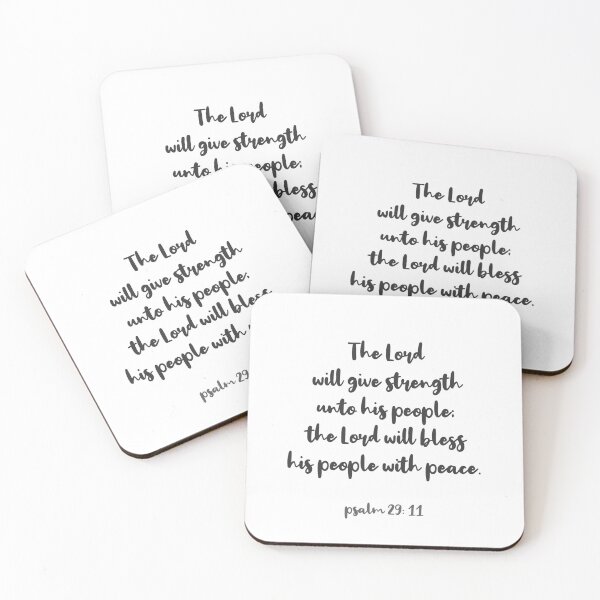 The Lord
will give strength
unto his people;
bless
The Lord
will give strength
unto his people;
the Lord will bless
his people with peace.
The Lord
will give strength
unto his people;
the Lord will bless
his people with
psalm 29
The Lord
will give strength
unto his people;
the Lord will bless
his people with peace.
psalm 29: 11